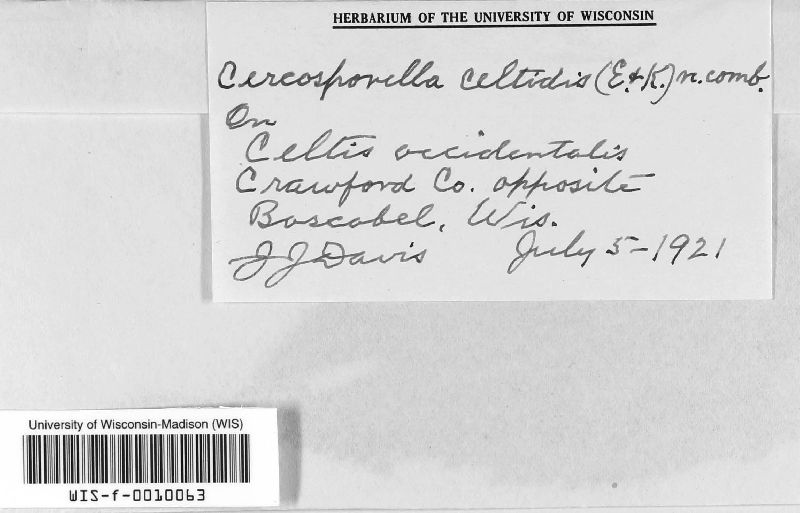 HERBARIUM OF THE UNIVERSITY OF WISCONSIN
Cercosporella celtidis (E. & K.) n. comb.
On
Celtis occidentalis
Crawford Co. opposite
Boscobel, Wis.
J J Davis July 5-1921
University of Wisconsin-Madison (WIS)
WIS-f-0010063